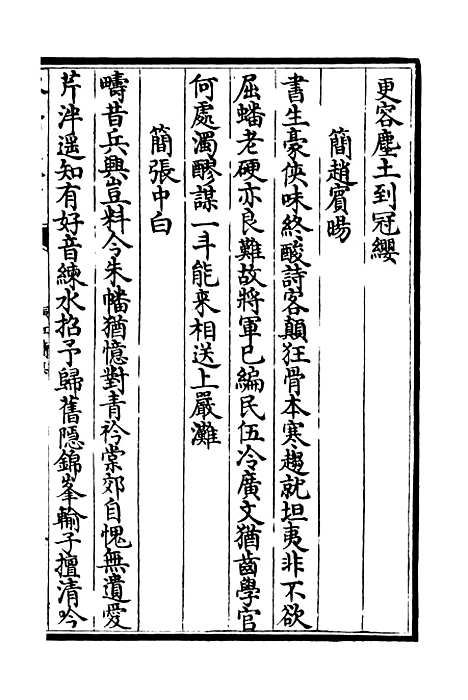 更容塵土到冠纓
簡趙賓暘
書生豪俠味終酸詩客顛狂骨本寒趨就坦夷非不欲
屈蟠老硬亦良難故將軍已編民伍冷廣文猶齒學官
何處濁醪謀一斗能来相送上嚴灘
簡張中白
疇昔兵興豈料今朱幡猶憶對青衿棠郊自愧無遺愛
芹泮遥知有好音練水招予歸舊隱錦峯輸子擅清吟